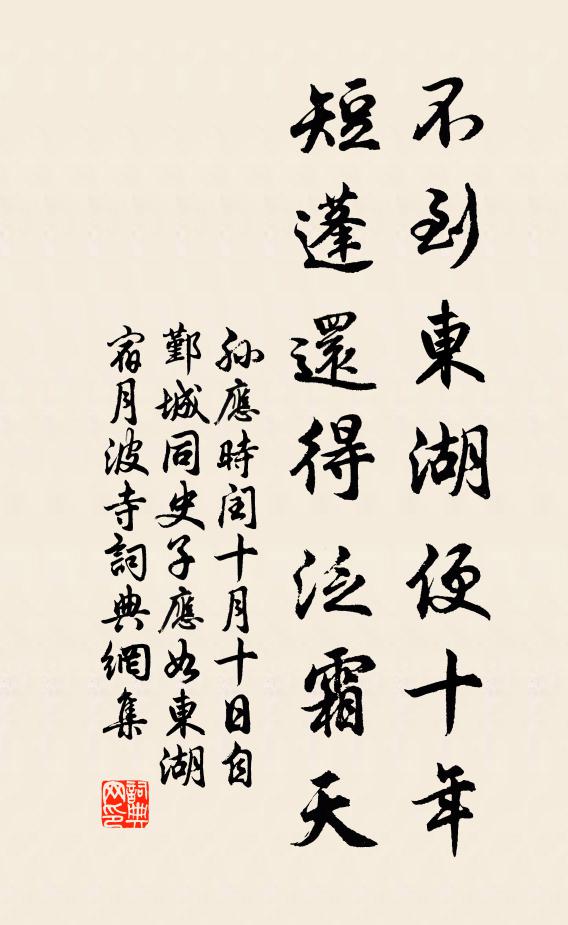 不到東湖便十年
短蓬還得泛霜天
孫應時閏十月十日自
鄞城同史子應如東湖
宿月波寺詞典網集
詞典网印